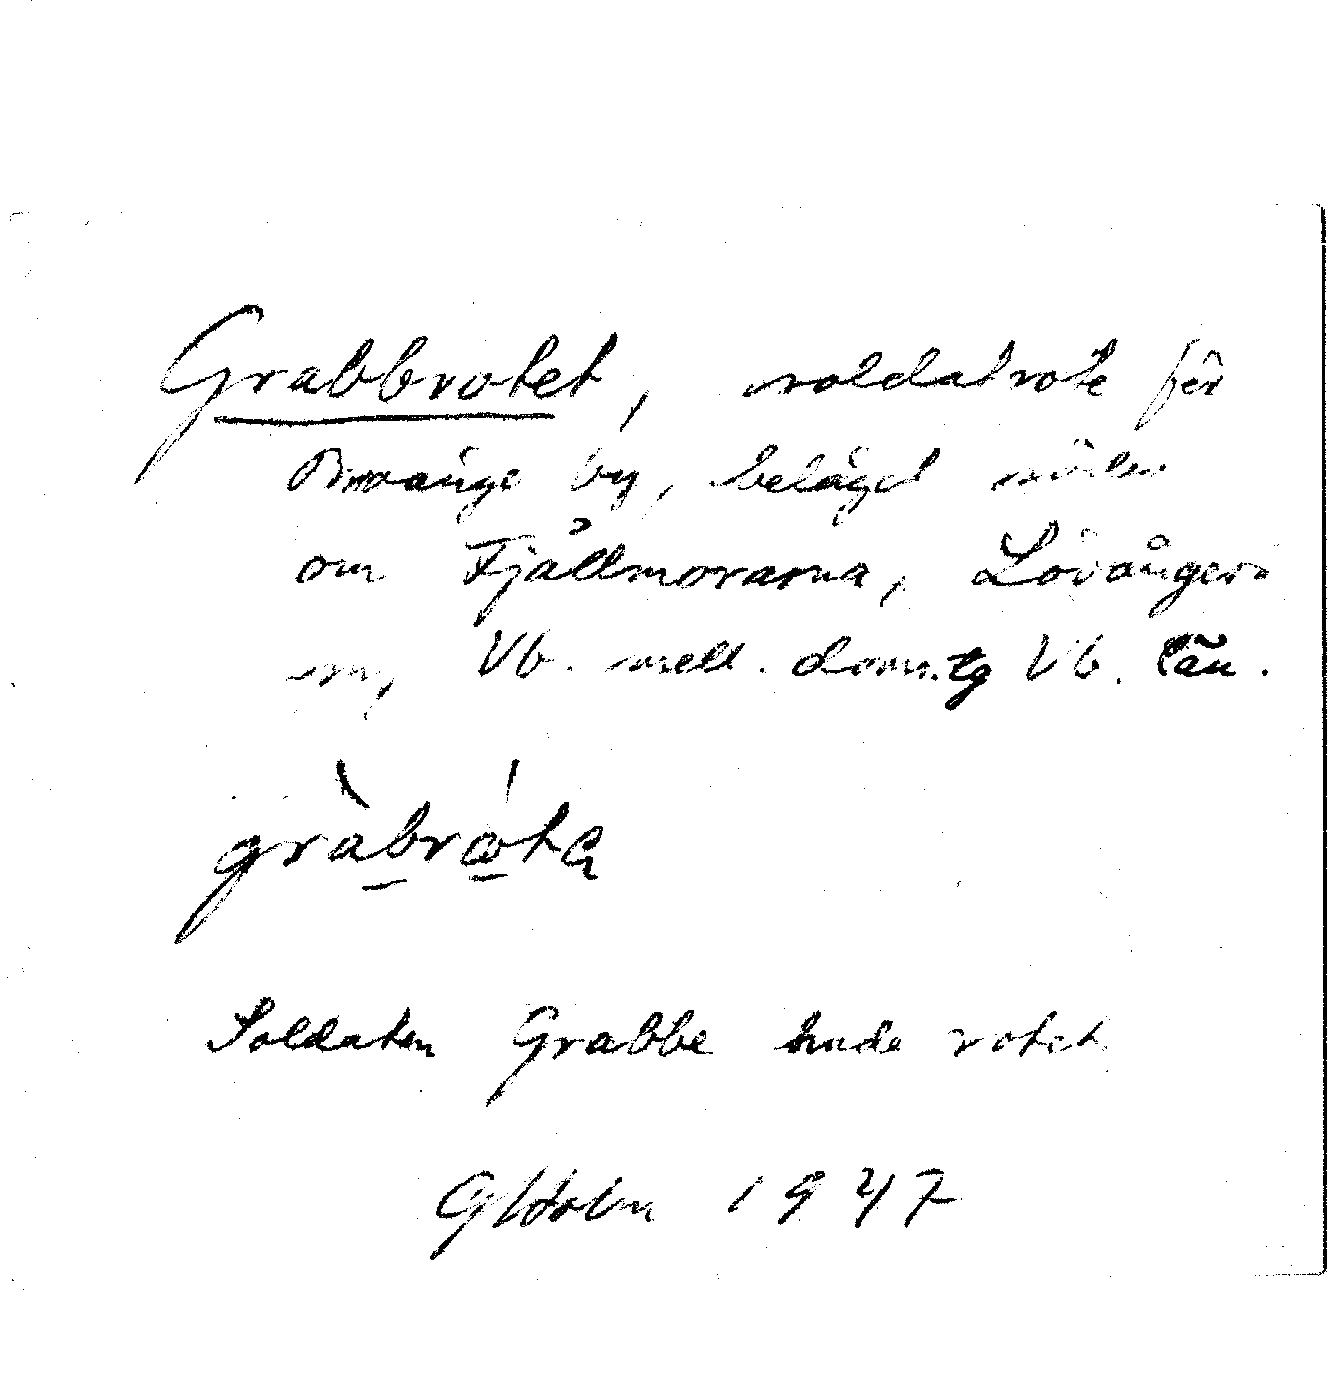 Grabbrotet, soldatrote för
Broänge by, beläget söder
om Fjällmorarna, Lövångers
sn, Vb. mell. doms.tg Vb. län.
gràbrǿta
Soldaten Grabbe hade rotet
GHolm 1947